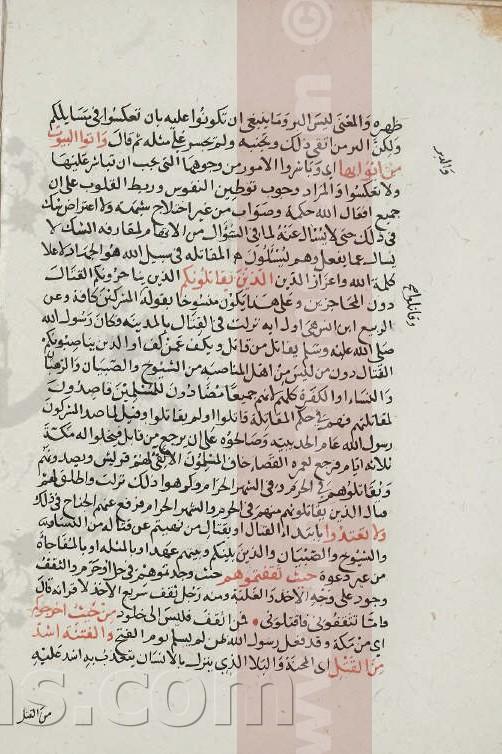 ظهره والمعنى ليس البر وما ينبغى ان تكونوا عليه بان تعكسوا فى مسايلكم
ولكن البر من اتقى ذلك وتجنبه ولم يجسر على مثله ثم قال واتوا البيوت
من ابوابها اى وباشروا الامور من وجوهها التى يجب ان تباشر عليها
ولا تعكسوا والمراد وجوب توطين النفوس وربط القلوب على ان
جميع افعال الله حكمة وصواب من غير اختلاج شبهة ولا اعتراض شك
فى ذلك حتى لا يسال عنه لما فى السؤال من الاتهام لمقارفة الشك لا
يسال عما يفعل وهم يسئلون المقاتلة فى سبيل الله هو الجهاد لاعلا
كلمة الله واعزاز الدين الذين يقاتلونكم الذين يناجزونكم القتال
دون المحاجزين وعلى هذا يكون منسوخا بقوله المشركين كافة وعن
الربيع ابن انس هى اول اية نزلت فى القتال بالمدينة وكان رسول الله
صلى الله عليه وسلم يقاتل من قاتل ويكف عمن كف او الذين يناصبونكم
القتال دون من ليس من اهل المناصبة من الشيوخ والصبيان والرهبان
والنساء او الكفرة كلهم لانهم جميعا مضادون للمسلمين قاصدون
لمقاتلتهم فهم فى حكم المقاتلة قاتلوا او لم يقاتلوا وقيل لما صد المشركون
رسول الله عام الحديبية وصالحوه على ان يرجع من قابل فيخلوا له مكة
ثلاثة ايام فرجع لعمرة القضا خاف المسلمون الا تفى لهم قريش ويصدوهم
ويقاتلوهم فى الحرم وفى الشهر الحرام وكرهوا ذلك نزلت واطلق لهم
قتال الذين يقاتلونهم منهم فى الحرم والشهر الحرام ورفع عنهم الجناح فى ذلك
ولا تعتدوا بابتداء القتال او بقتال من نهيتم عن قتاله من النساء
والشيوخ والصبيان والذين بينكم وبينهم عهد او بالمثلة او بالمفاجاة
من غير دعوة حيث ثقفتموهم حيث وجدتموهم فى حل او حرم والثقف
وجود على وجه الاخذ والغلبة ومنه رجل ثقف سريع الاخذ لاقرانه قال
فاما تثقفونى فاقتلونى فمن اثقف فليس الى خلود من حيث اخرجوكم
اى من مكة وقد فعل رسول الله بمن لم يسلم يوم الفتح والفتنة اشد
من القتل اى المحنة والبلا الذى ينزل بالانسان يتعذب به اشد عليه
من القتل
وقاتلوا